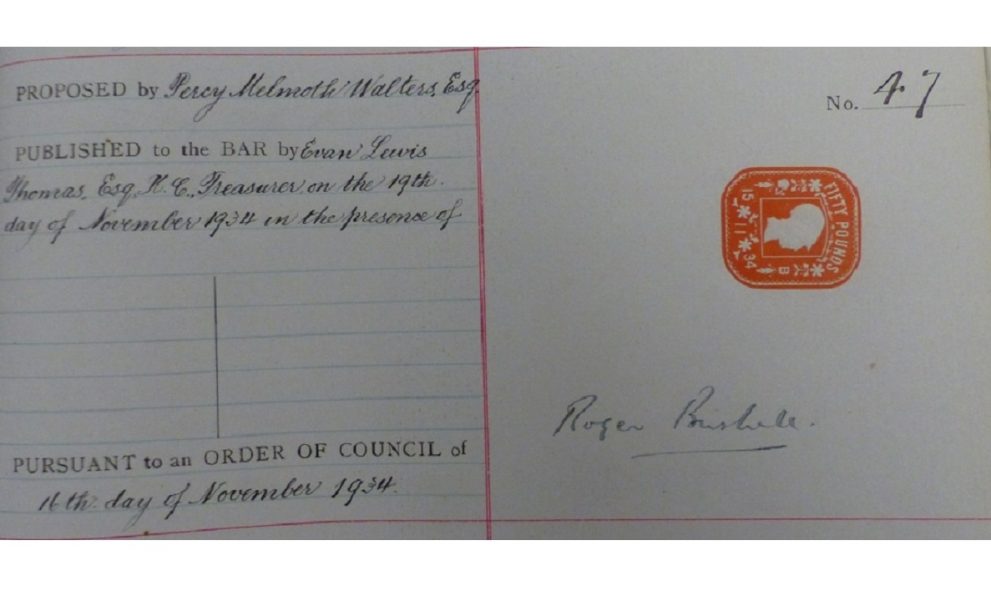 PROPOSED by Percy Melmoth Walters, Esq.
PUBLISHED to the BAR by Evan Lewis
Thomas, Esq. K.C., Treasurer on the 19th.
day of November 1934 in the presence of
PURSUANT to an ORDER OF COUNCIL of
16th. day of November 1934.
No. 47
FIFTY POUNDS
15 11 34
B
Roger Bushell.